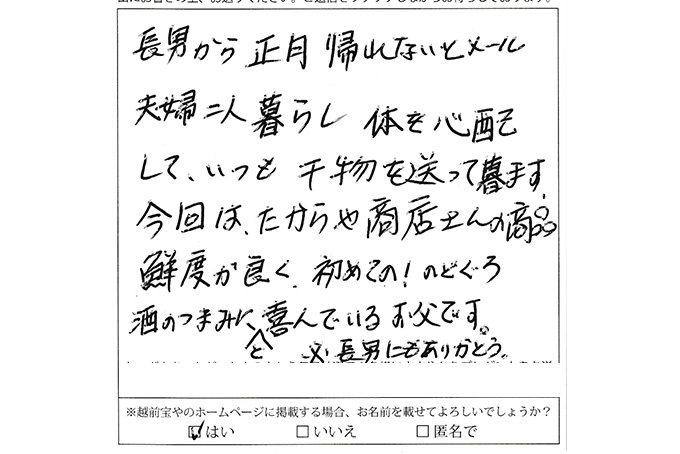 長男から 正月 帰れないとメール
夫婦二人暮らし 体を心配を
して、いつも 干物を送って暮ます。
今回は、たからや商店さんの商品
鮮度が良く、初めての!のどぐろ
酒のつまみに、喜んでいるお父です。
と 必 長男にもありがとう。
※越前宝やのホームページに掲載する場合、お名前を載せてよろしいでしょうか？
はい いいえ 匿名で